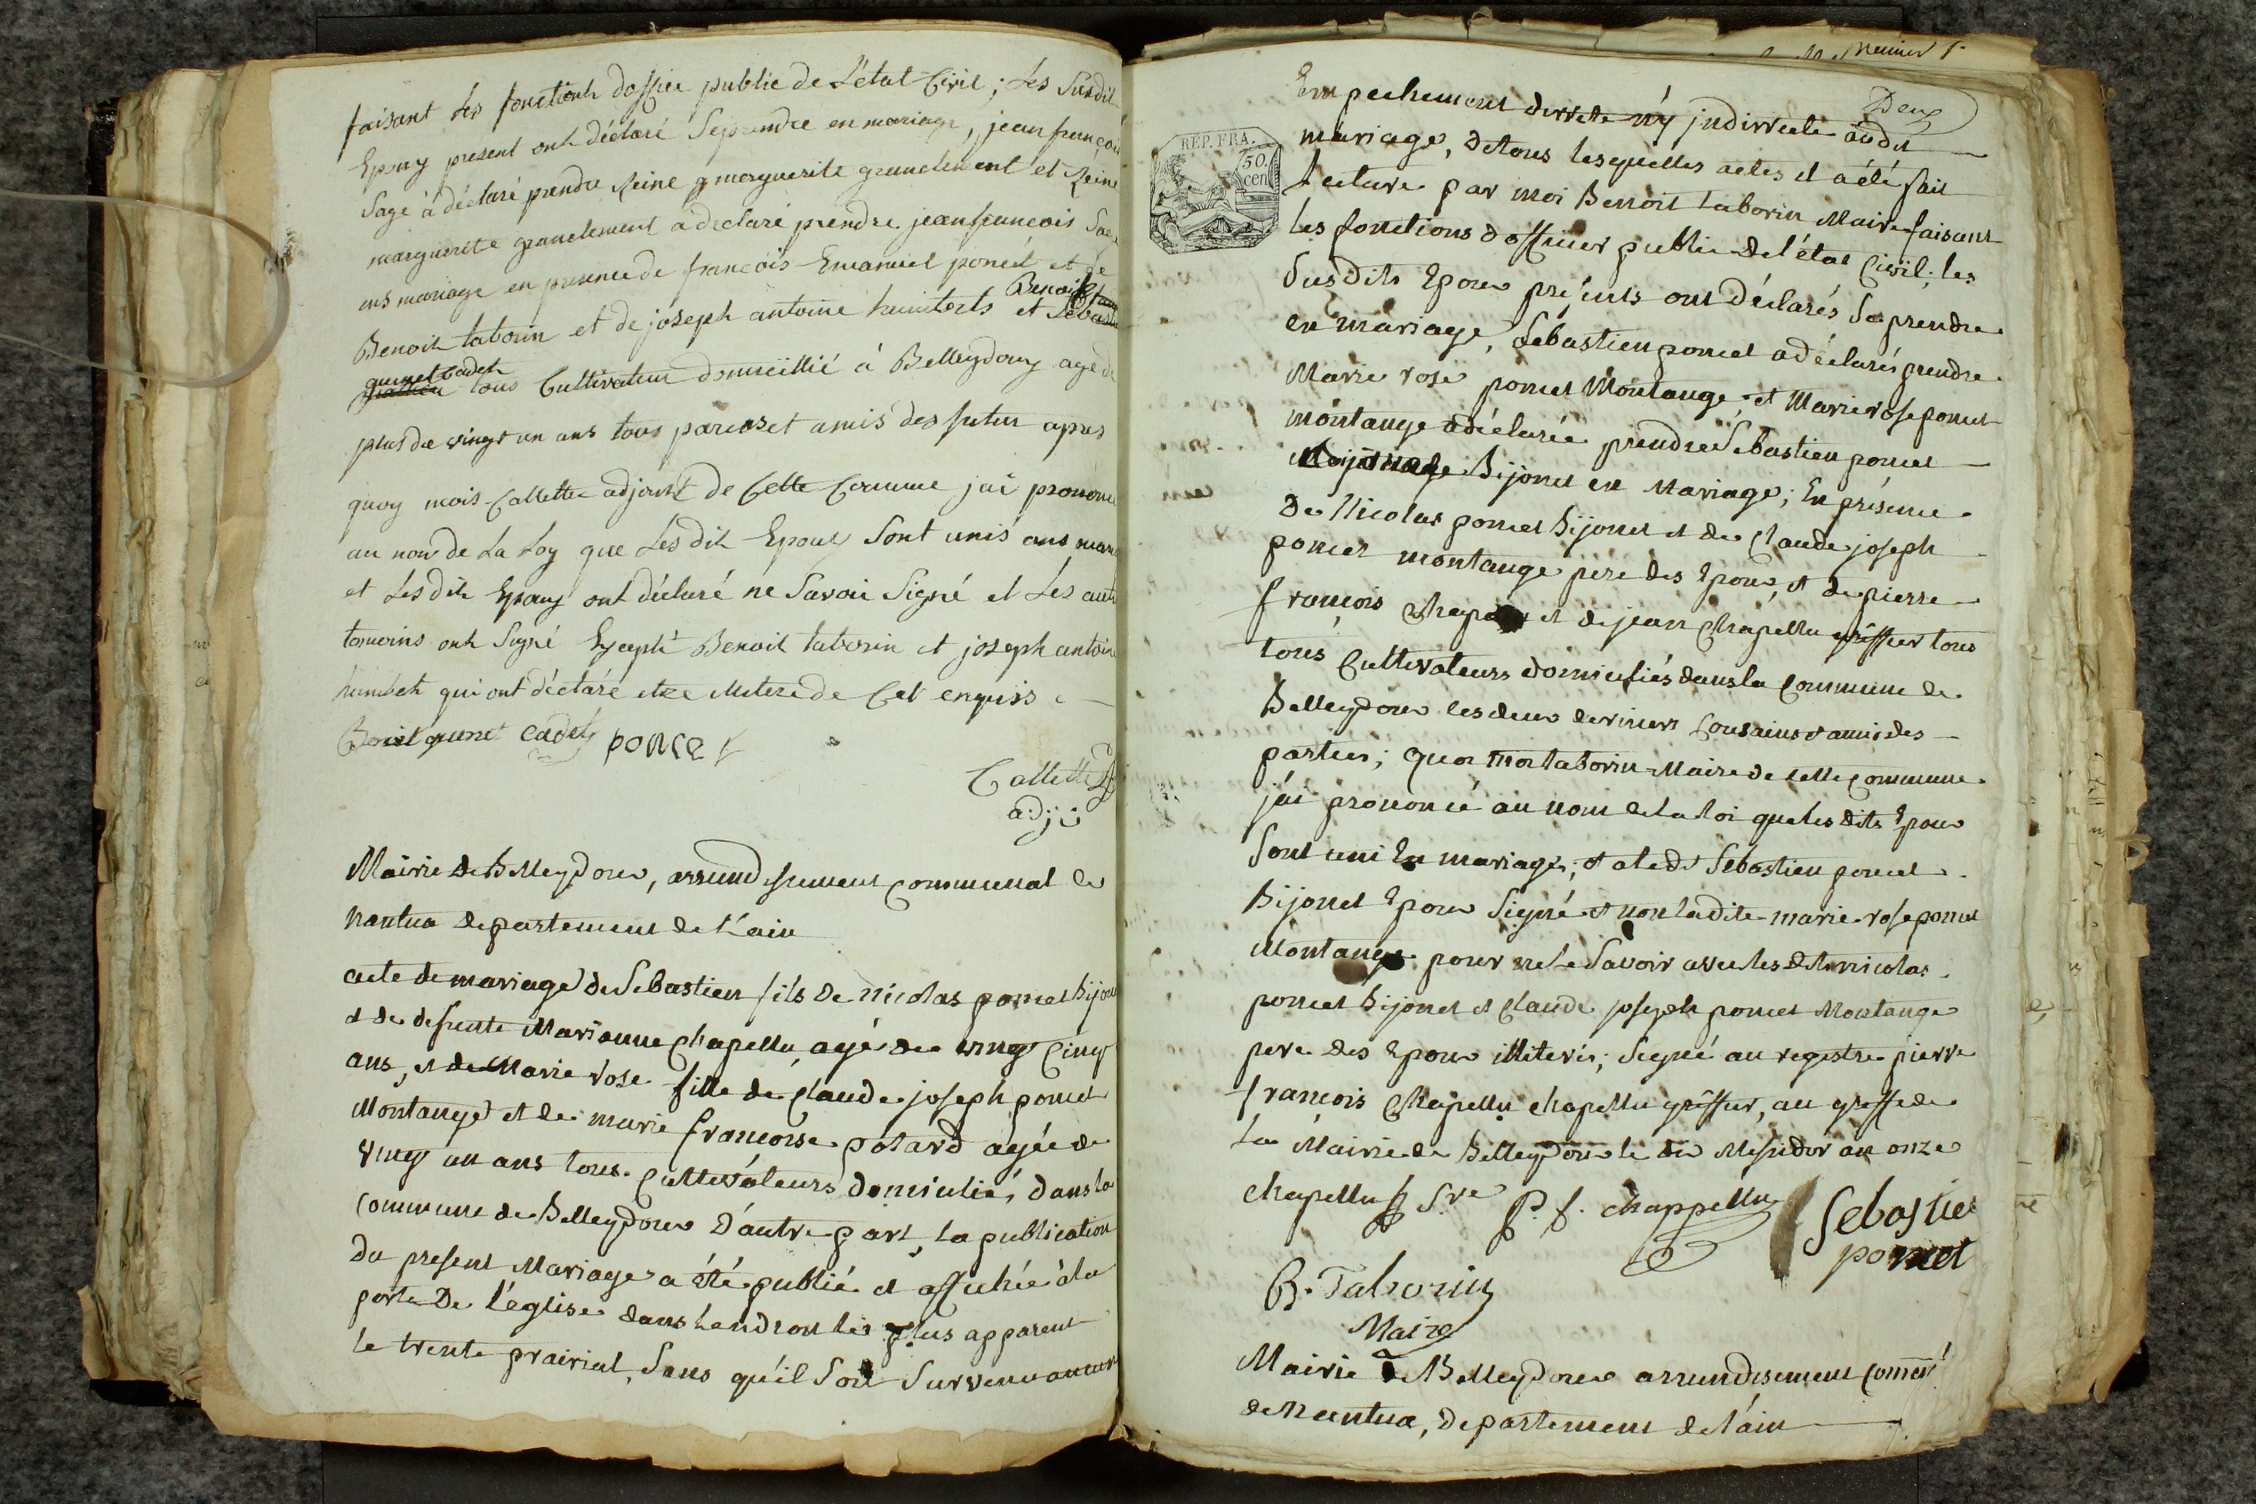 faisant les fonctions doffice public de L'état Civil; Les Susdit
Epoux present ont déclaré Seprendre en mariage, jean françois
Sage à déclaré prendre Reine marguerite granclement et Reine
marguerite granclement a déclaré prendre jeanfrancois Sage
ens mariage en presence de françois Emanuel poncet et de
Benoit taborin et de joseph antoine humberts et Benoit
gunet cadet tous Cultivateur domicillié à Belleydoux agé de
plus de vingt un ans tous parens et amis des futur apres
quoy mois Callette adjoint de Cette Commune jai prononcé
au nom de La Loy que Lesdit Epoux Sont unis ans mariage
et Lesdit Epoux ont déclaré ne Savoir Signé et Les autre
temoins ont Signé Excepté Benoit taborin et joseph antoine
humbert qui ont déclaré etre illiteré de Cet enquis
Benoit gunet cadet poncet
Callette
adj
Mairie de Belleydoux, arrundissement communal de
Nantua departement de L'ain
acte de mariage de Sebastien fils de nicolas poncet Bijon
et de defunte Marianne Chapellu, agé de vingt cinq
ans, et de Marie rose fille de Claude joseph poncet
Montange et de marie françoise potard agée de
vingt un ans tous cultivateurs domiciliés dans la
commune de Belleydoux D'autre part, la publication
du present Mariage a été publié et affichée à la
porte De l'église dans lendroit les plus apparent
le trente prairial, Sans qu'il Soit Survenu aucun
Deux
REP. FRA.
50.
cen
Empechement dirrecte ny indirrecte audit
mariage, de tous lesquelles actes il a été fait
Lecture par moi Benoit taborin Maire faisant
les fonctions dofficier public de l'état Civil; les
Susdits Epoux présents ont déclarés Se prendre
en mariage, Sébastien poncet a déclarés prendre
Marie rose poncet Montange et Marie rose poncet
montange a déclarée prendre Sébastien poncet
Bijonet en Mariage; En présence
de Nicolas poncet Bijonet et de Claude joseph
poncet montange pere des Epoux, et de pierre
françois Chapellu et de jean Chapellu greffier tous
tous Cultivateurs domiciliés dans la commune de
Belleydoux les deux derniers Cousains et amis des
parties; quoi moi taborin Maire de cette commune
jai prononcé au nom de la loi que les dits Epoux
Sont uni En mariage, et a ledt Sébastien poncet
Bijonet Epoux Signé et non ladite marie rose poncet
Montange pour ne le Savoir avec les dits nicolas
poncet Bijonet et Claude joseph poncet Montange
pere des Epoux illiterés; Signé au registre pierre
françois Chapellu chapellu greffier, au greffe de
la Mairie de Belleydoux le dix Messidor an onze
chapellu Sre P. f. chappellu Sebastien
poncet
B. Taborin
Maire
Mairie de Belleydoux arrundisement Commal
de Nantua, Departement de l'ain